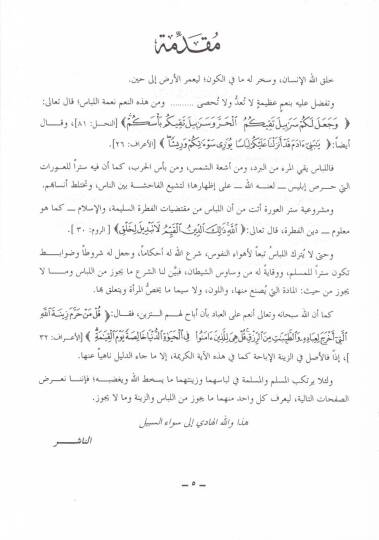 مُقدِّمة
خلق الله الإنسان، وسخر له ما في الكون؛ ليعمر الأرض إلى حين.
وتفضل عليه بنعم عظيمةٍ لا تُعدُّ ولا تُحصى ......... ومن هذه النعم نعمة اللباس؛ قال تعالى:
﴿ وَجَعَلَ لَكُمْ سَرَابِيلَ تَقِيكُمُ الْحَرَّ وَسَرَابِيلَ تَقِيكُم بَأْسَكُمْ ﴾ [النحل: ٨١]، وقال
أيضاً: ﴿ يَبَنِي ءَادَمَ قَدْ أَنزَلْنَا عَلَيْكُمْ لِبَاسًا يُوَرِي سَوْءَتِكُمْ وَرِيشًا ﴾ [الأعراف: ٢٦].
فاللباس يقي المرء من البرد، ومن أشعة الشمس، ومن بأس الحرب، كما أن فيه ستراً للعورات
التي حرص إبليس ـ لعنه الله ـ على إظهارها؛ لتشيع الفاحشة بين الناس، وتختلط أنسابهم.
ومشروعية ستر العورة أتت من أن اللباس من مقتضيات الفطرة السليمة، والإسلام ـ كما هو
معلوم ـ دين الفطرة، قال تعالى: ﴿ ذَلِكَ الدِّينُ الْقَيِّمُ ﴾ [الروم: ٣٠].
وحتى لا يُترك اللباسُ تبعاً لأهواء النفوس، شرع الله له أحكاماً، وجعل له شروطاً وضوابط
تكون ستراً للمسلم، ووقاية له من وساوس الشيطان، فبيَّن لنا الشرع ما يجوز من اللباس وما لا
يجوز من حيث: المادة التي يُصنع منها، واللون، ولا سيما ما يخصُّ المرأة ويتعلق بها.
كما أن الله سبحانه وتعالى أنعم على العباد بأن أباح لهم التزين، فقال: ﴿ قُلْ مَنْ حَرَّمَ زِينَةَ اللَّهِ
الَّتِي أَخْرَجَ لِعِبَادِهِ وَالطَّيِّبَتِ مِنَ الرِّزْقِ قُلْ هِيَ لِلَّذِينَ ءَامَنُوا فِي الْحَيَوةِ الدُّنْيَا خَالِصَةً يَوْمَ الْقِيَمَةِ ﴾ [الأعراف: ٣٢
]، إذاً فالأصل في الزينة الإباحة كما في هذه الآية الكريمة، إلا ما جاء الدليل ناهياً عنها.
ولئلا يرتكب المسلم والمسلمة في لباسهما وزينتهما ما يسخط الله ويغضبه؛ فإننا نعرض
الصفحات التالية، ليعرف كل واحد منهما ما يجوز من اللباس والزينة وما لا يجوز.
هذا والله الهادي إلى سواء السبيل
الناشر
ـ ٥ ـ